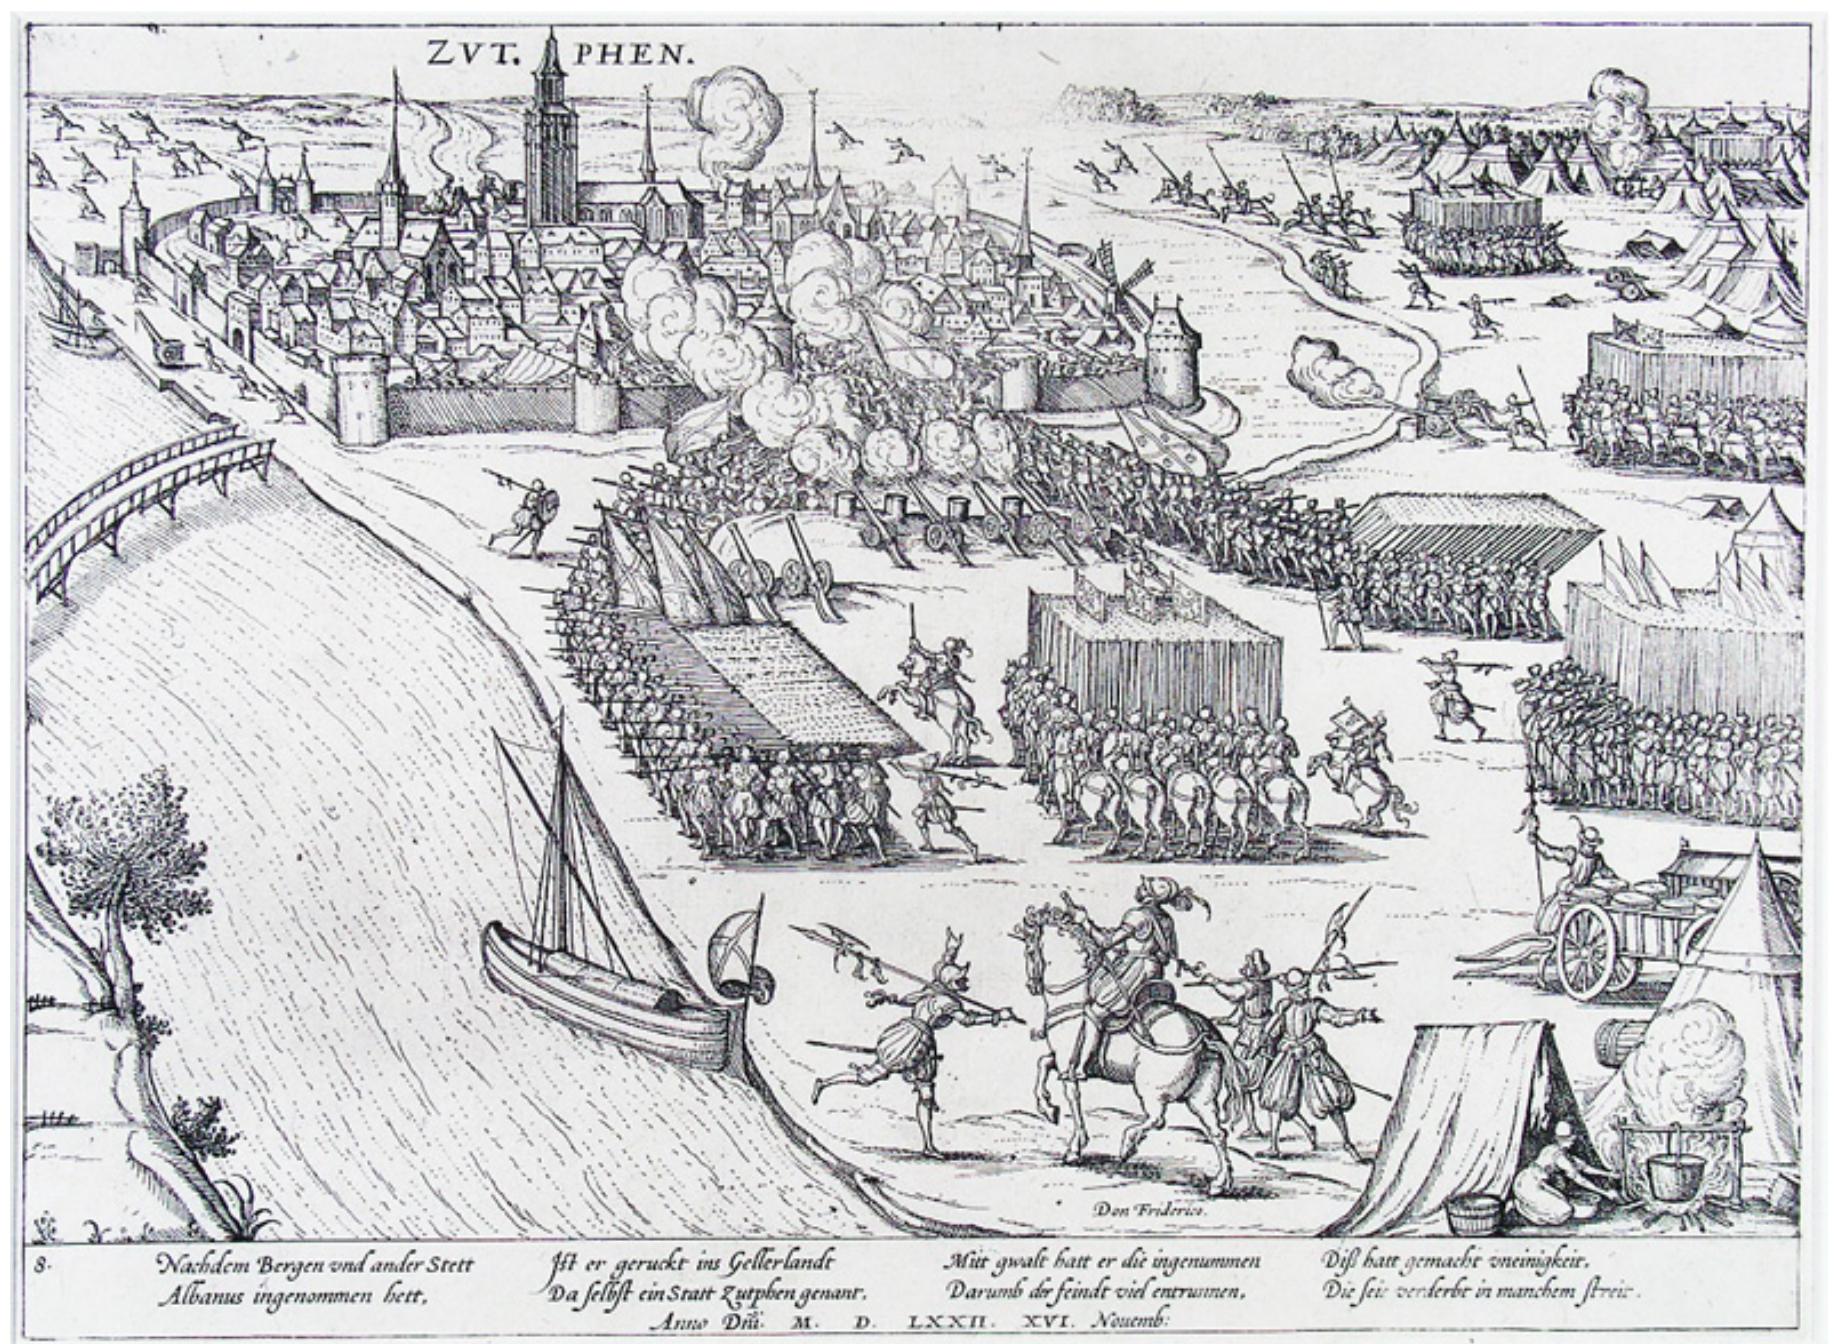 ZVT. PHEN.
Don Friderico.
8.
Nachdem Bergen vnd ander Stett
Albanus ingenommen hett,
Jst er geruckt ins Gellerlandt
Da selbst ein Statt Zutphen genant.
Mitt gwalt hatt er die ingenummen
Darumb der feindt viel entrunnen,
Diß hatt gemacht vneinigkeit,
Die seie verderbt in manchem streit.
Anno Dnĩ. M. D. LXXII. XVI. Nouemb: